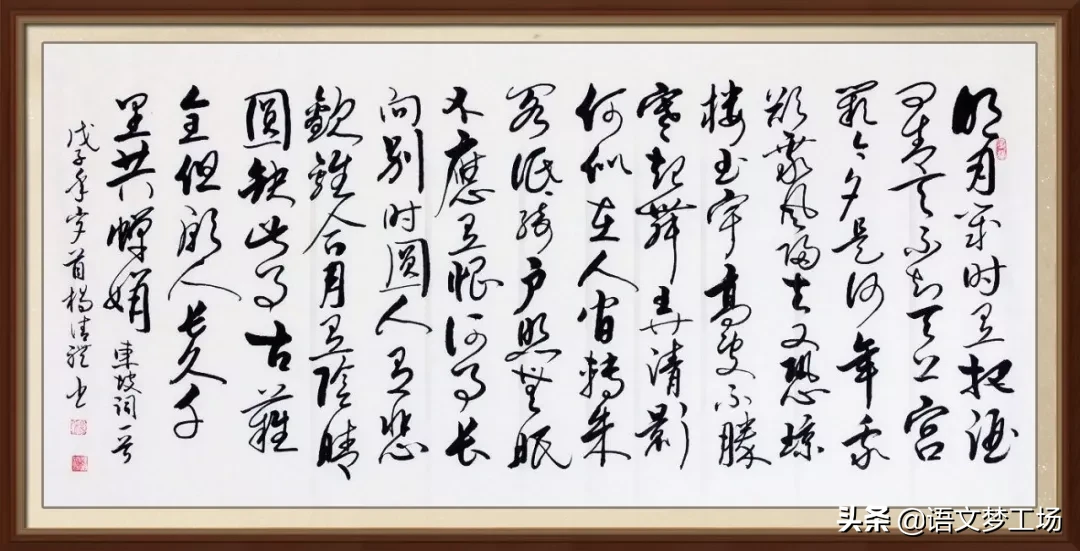 明月幾时有把酒
问青天不知天上宫
阙今夕是何年我
欲乘风归去又恐琼
楼玉宇高处不勝
寒起舞弄清影
何似在人间轉朱
阁低绮户照無眠
不應有恨何事长
向别时圆人有悲
歡離合月有陰晴
圆缺此事古難
全但願人长久千
里共嬋娟
東坡词一首
戊子年岁首楊清 书
头条 @语文梦工场